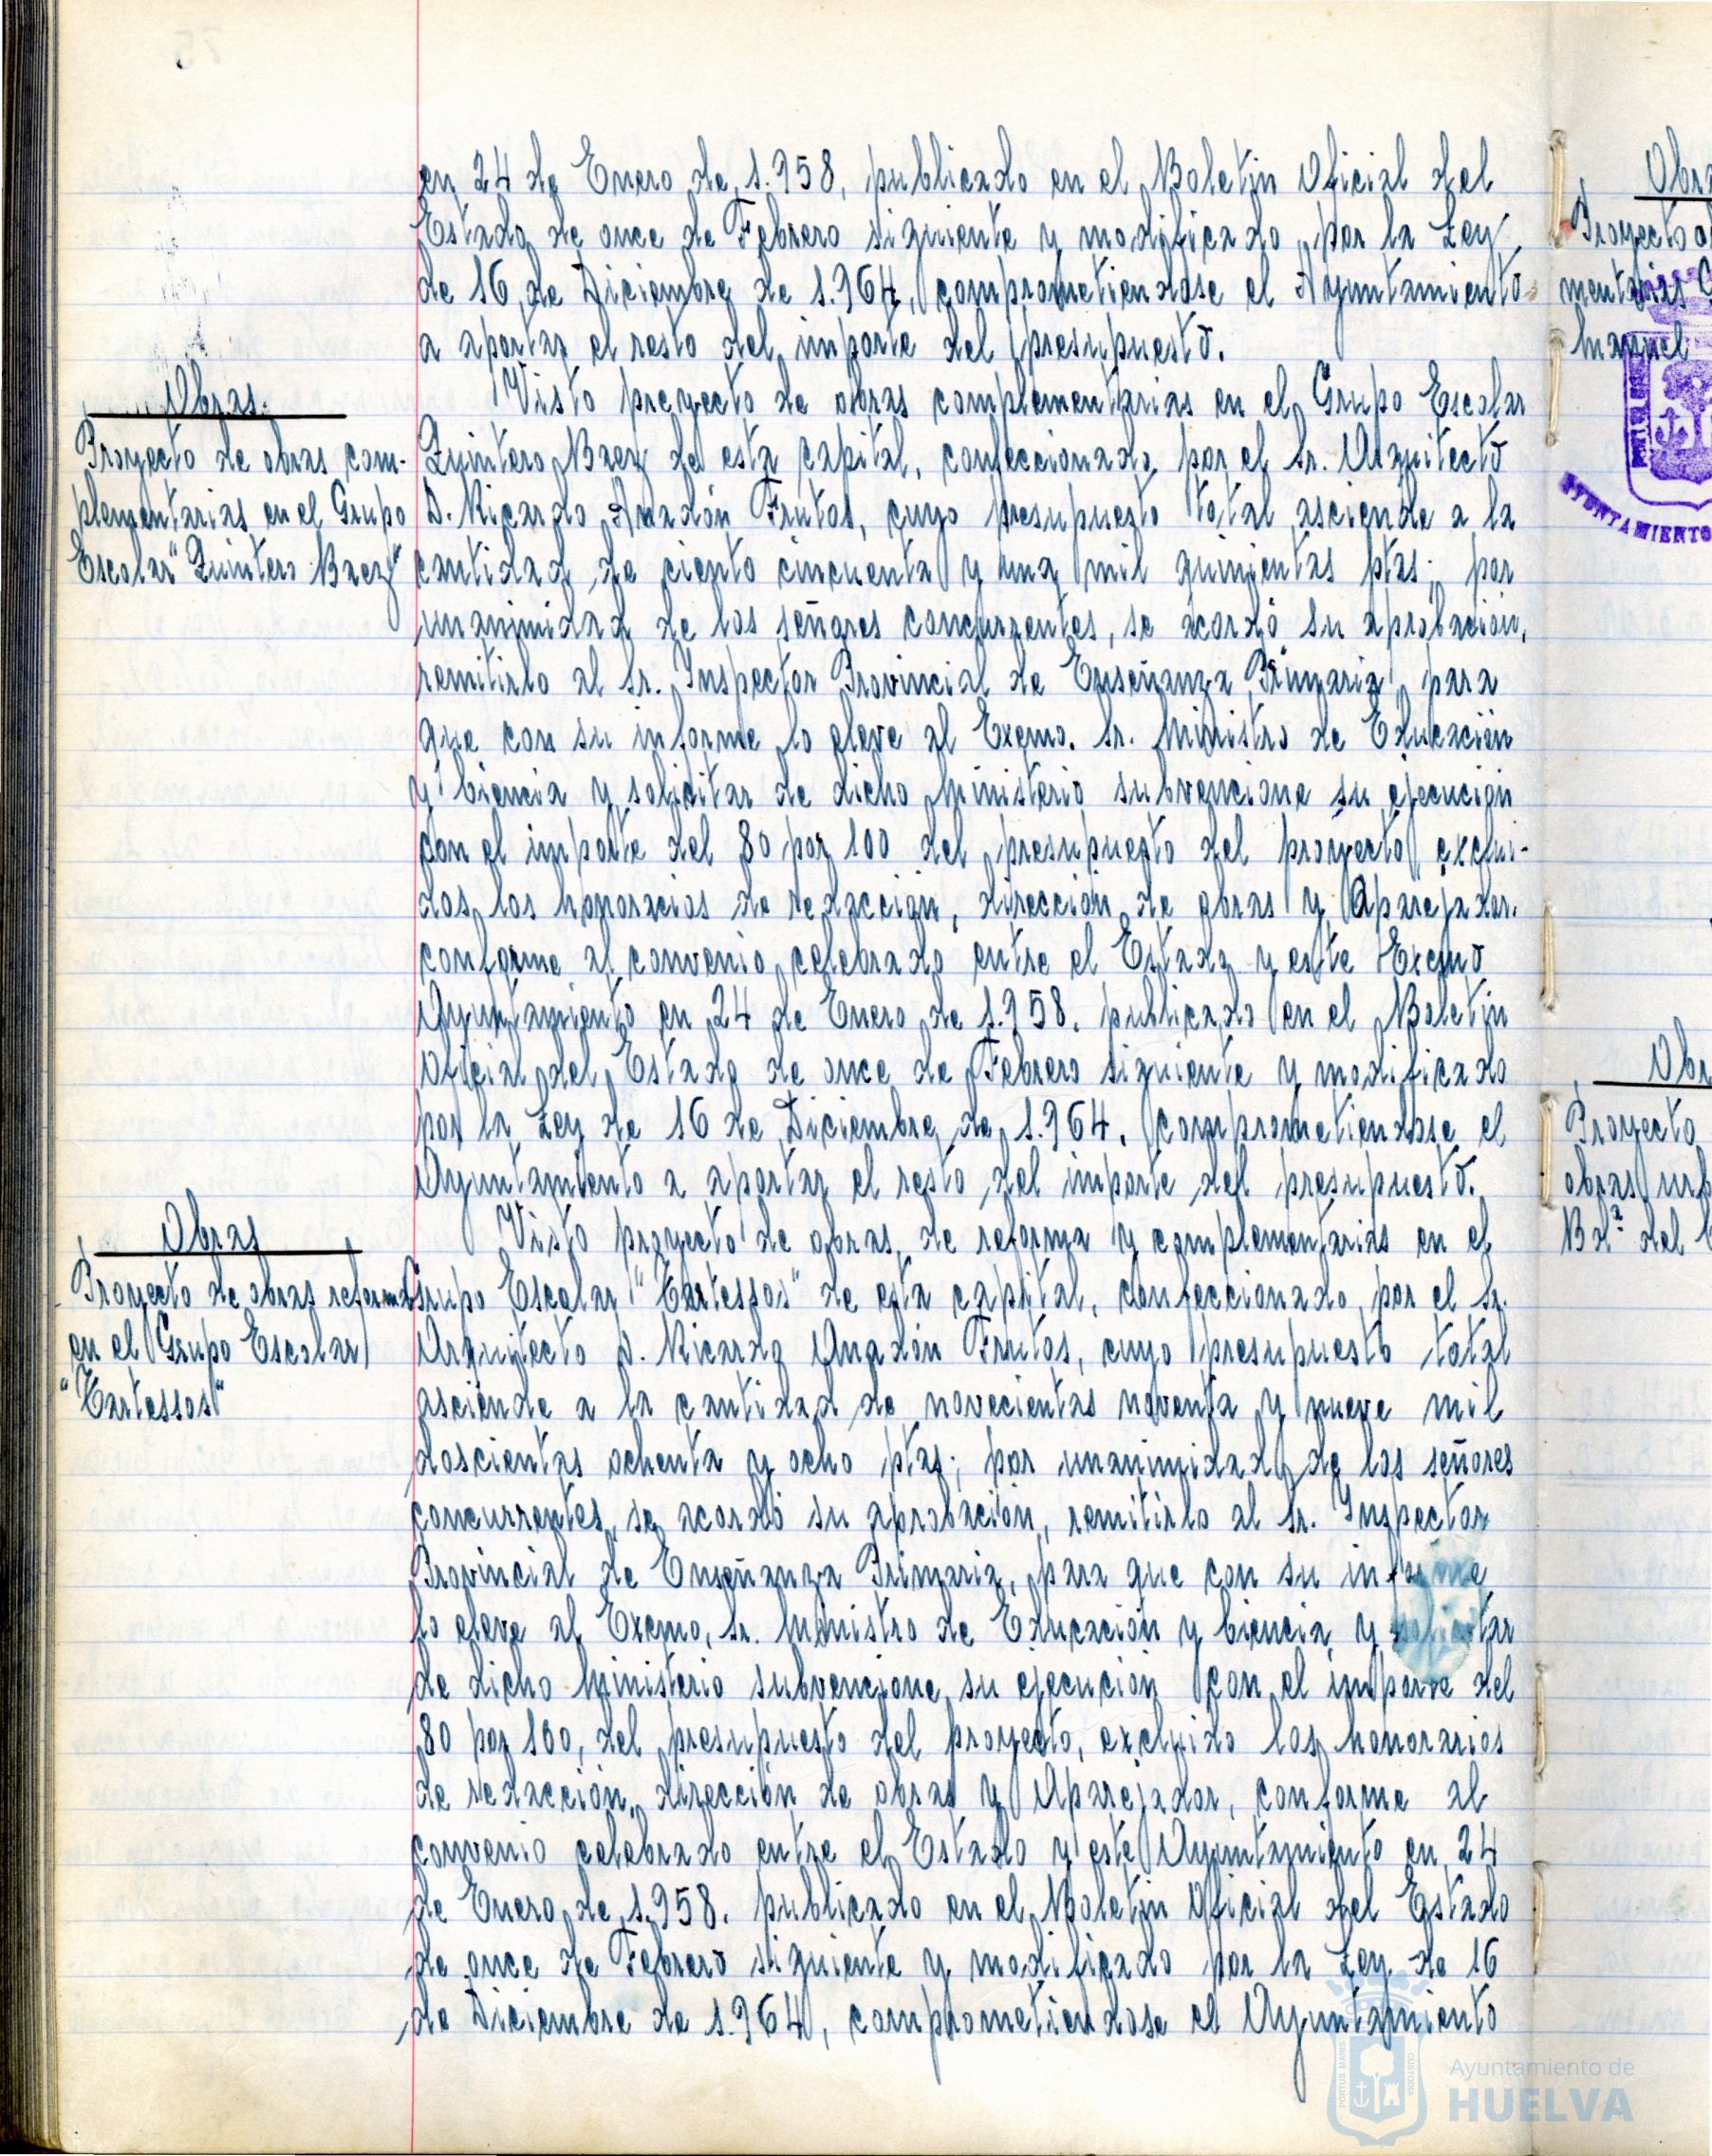 en 24 de Enero de 1.958, publicado en el Boletin Oficial del
Estado de once de Febrero siguiente y modificado por la Ley
de 16 de Diciembre de 1.964, comprometiendose el Ayuntamiento
a aportar el resto del importe del presupuesto.
Obras.
Proyecto de obras com-
plementarias en el Grupo
Escolar "Quintero Baez"
Visto proyecto de obras complementarias en el Grupo Escolar
Quintero Baez de esta capital, confeccionado por el Sr. Arquitecto
D. Ricardo Anadón Frutos, cuyo presupuesto total asciende a la
cantidad de ciento cincuenta y una mil quinientas ptas; por
unanimidad de los señores concurrentes, se acordó su aprobación,
remitirlo al Sr. Inspector Provincial de Enseñanza Primaria, para
que con su informe lo eleve al Excmo. Sr. Ministro de Educación
y Ciencia y solicitar de dicho Ministerio subvencione su ejecución
con el importe del 80 por 100 del presupuesto del proyecto exclui-
dos los honoracios de redacción, dirección de obras y Aparejador.
conforme al convenio celebrado entre el Estado y este Excmo
Ayuntamiento en 24 de Enero de 1.958. publicado en el Boletin
Oficial del Estado de once de Febrero siguiente y modificado
por la Ley de 16 de Diciembre de 1.964, comprometiendose el
Ayuntamiento a aportar el resto del importe del presupuesto.
Obras
Proyecto de obras reforma
en el Grupo Escolar
"Tartessos"
Visto proyecto de obras de reforma y complementarias en el
Grupo Escolar "Tartessos" de esta capital, confeccionado por el Sr.
Arquitecto D. Ricardo Anadón Frutos, cuyo presupuesto total
asciende a la cantidad de novecientas noventa y nueve mil
doscientas ochenta y ocho ptas; por unanimidad de los señores
concurrentes, se acordó su aprobación, remitirlo al Sr. Inspector
Provincial de Enseñanza Primaria, para que con su informe
lo eleve al Excmo, Sr. Ministro de Educación y Ciencia y solicitar
de dicho Ministerio subvencione su ejecución con el importe del
80 por 100, del presupuesto del proyecto, excluido los honorarios
de redacción, dirección de obras y Aparejador, conforme al
convenio celebrado entre el Estado y este Ayuntamiento en 24
de Enero de 1.958. publicado en el Boletin Oficial del Estado
de once de Febrero siguiente y modificado por la Ley de 16
de Diciembre de 1.964, comprometiendose el Ayuntamiento
Proyecto
mentarias
Manuel
AYUNTAMIENTO
Proyecto
obras urb
Bdª del
Ayuntamiento de
HUELVA